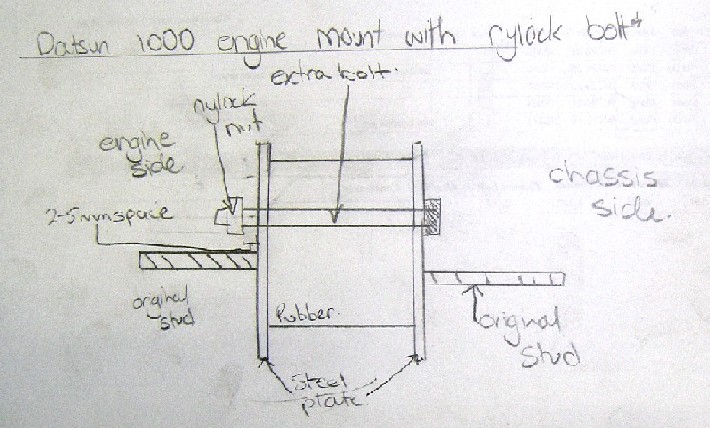 Datsun 1000 engine mount with nylock bolt
extra bolt.
nylock
nut
engine
side
chassis
side.
2-5mm space
orginal
stud
Rubber.
original
stud
Steel
plate